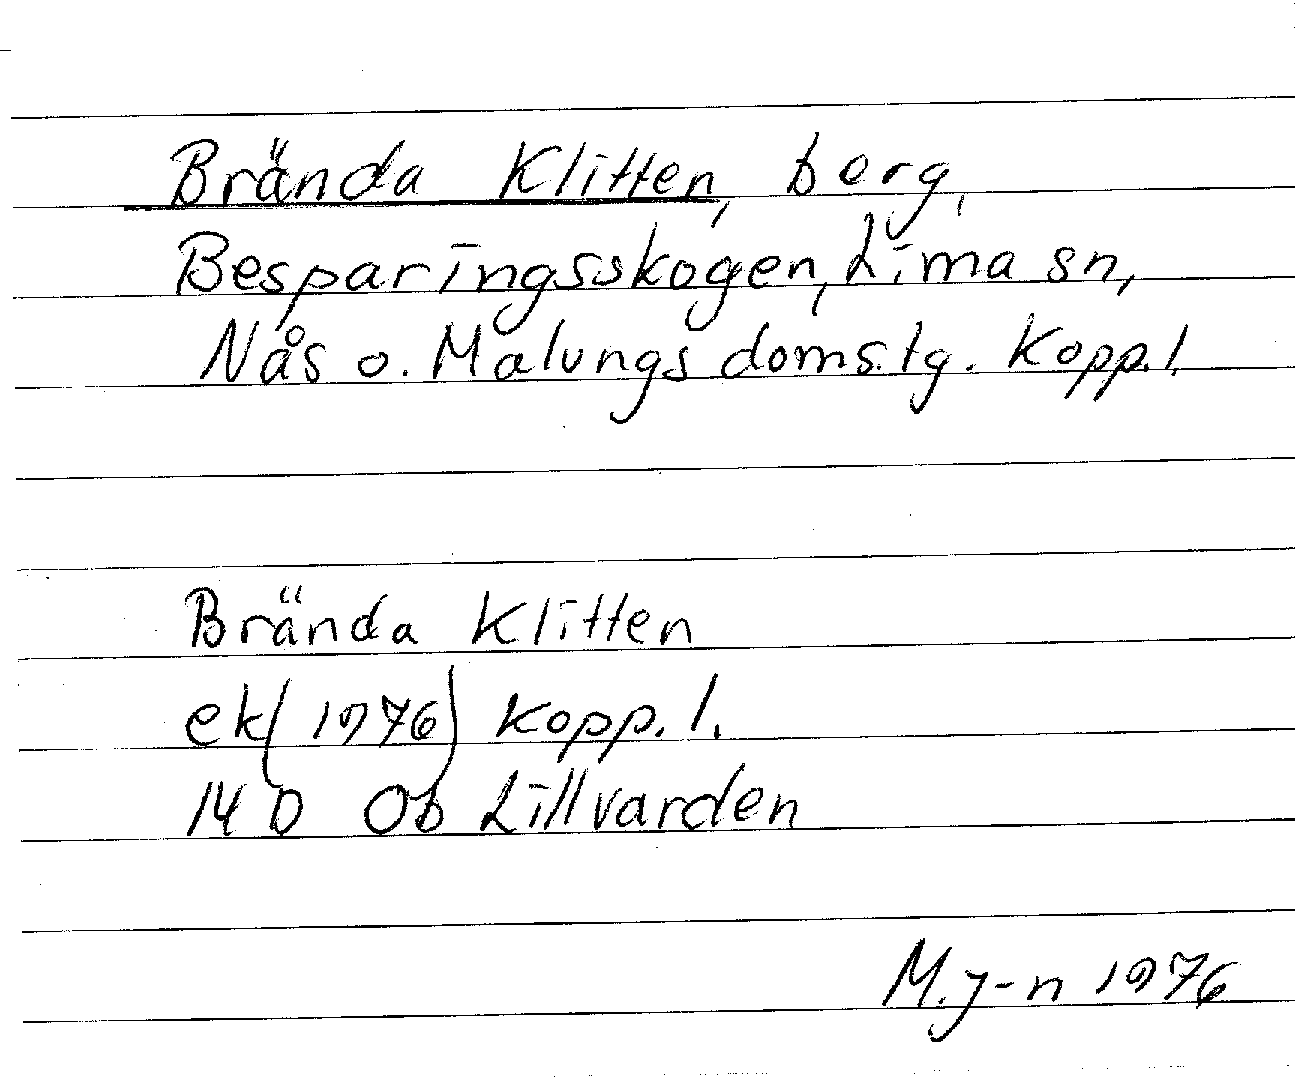 Brända Klitten, berg,
Besparingsskogen, Lima sn,
Nås o. Malungs doms.tg. Kopp.l.
Brända Klitten
ek (1976) Kopp. l.
14 D Ob Lillvarden
M.J-n 1976